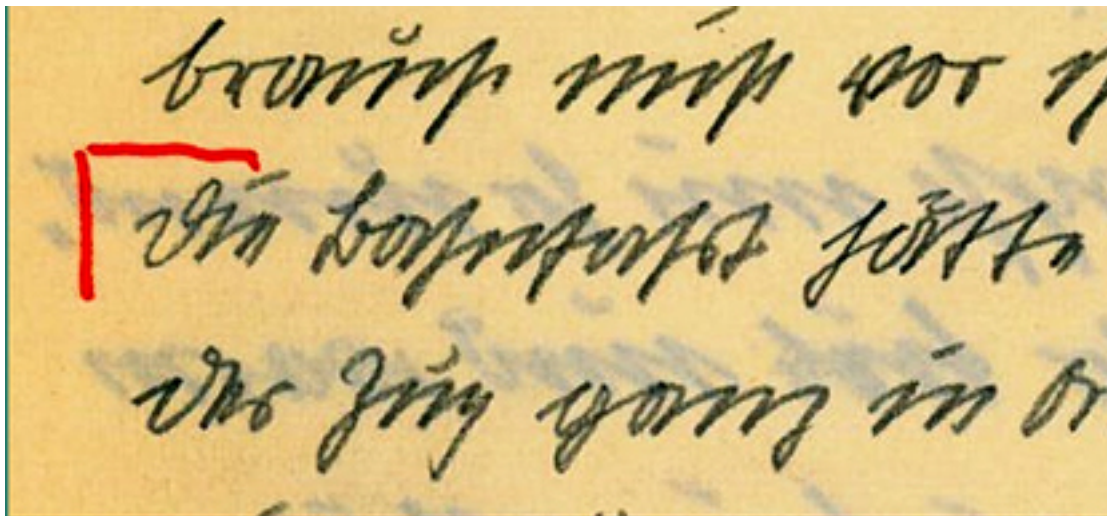 brauch mich vor
Die Bahnfahrt hätte
der Zug ganz in